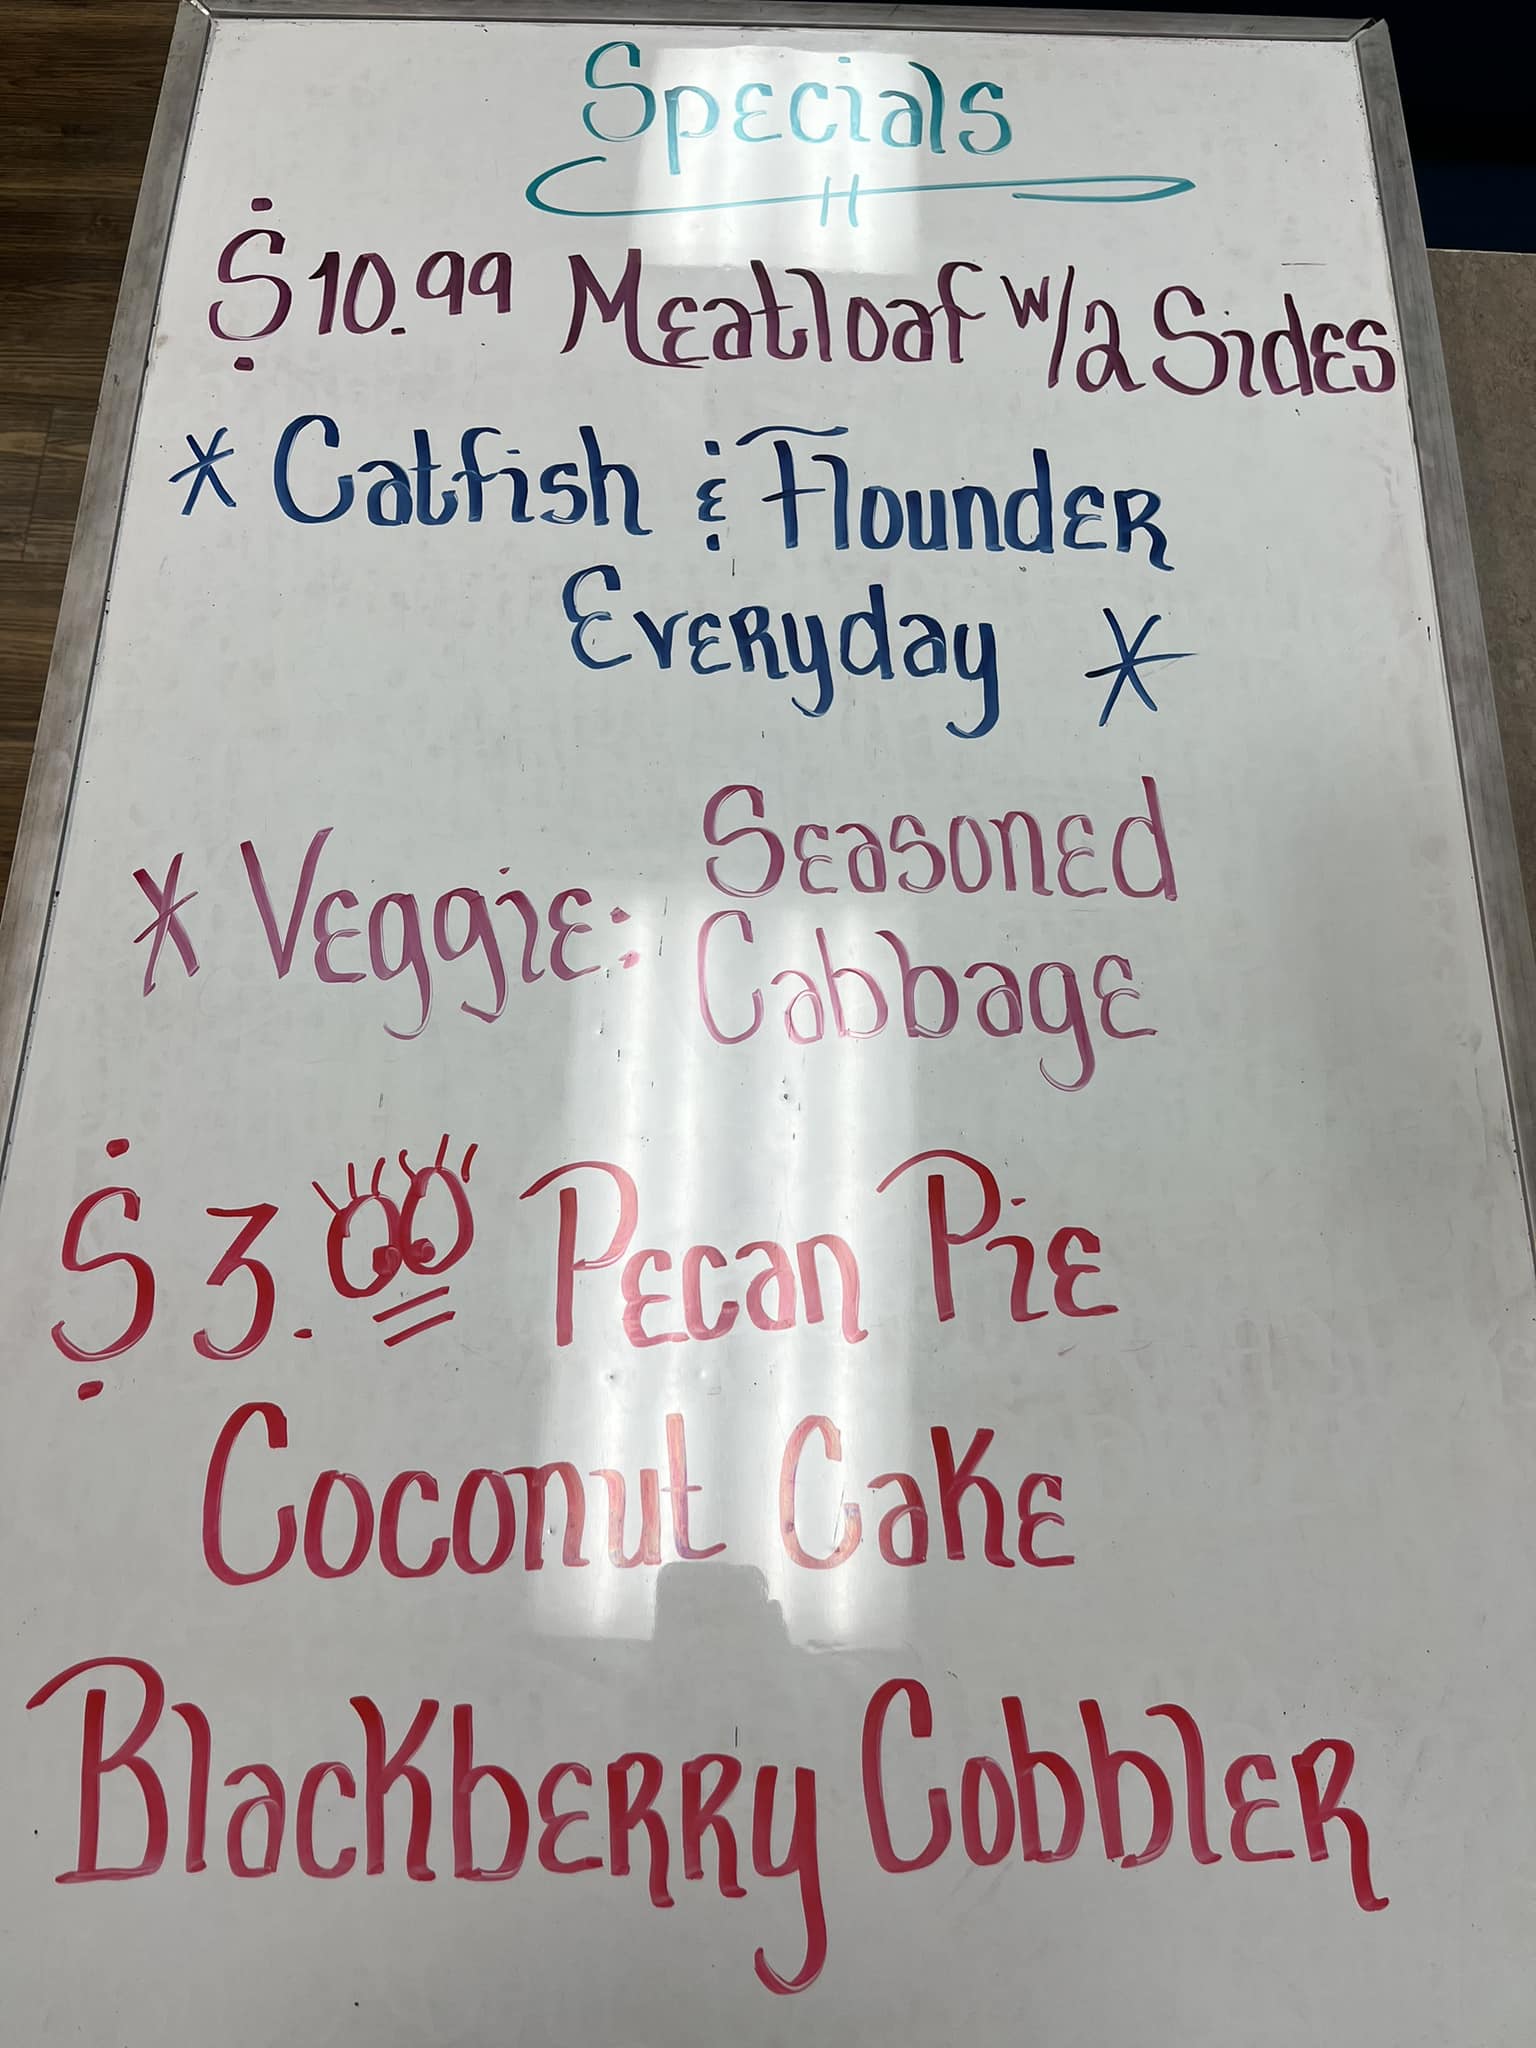 Specials
$10.99 Meatloaf w/2 Sides
* Catfish & Flounder
Everyday *
* Veggie: Seasoned
Cabbage
$3.00 Pecan Pie
Coconut Cake
Blackberry Cobbler